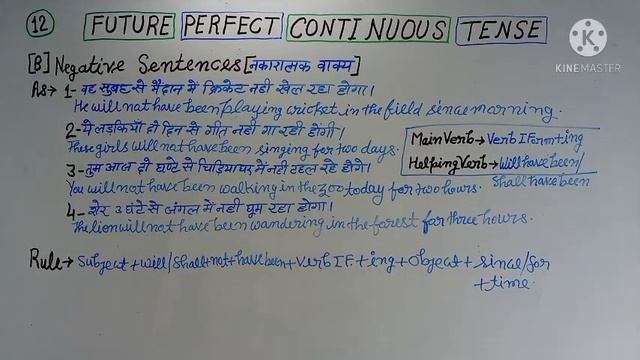 12 FUTURE PERFECT CONTINUOUS TENSE
KINEMASTER
[B] Negative Sentences [नकारात्मक वाक्य]
As → 1- वह सुबह से मैदान में क्रिकेट नहीं खेल रहा होगा।
He will not have been playing cricket in the field since morning.
2- ये लड़कियाँ दो दिन से गीत नहीं गा रही होंगी।
These girls will not have been singing for two days.
Main Verb → Verb I Form + ing
3- तुम आज दो घण्टे से चिड़ियाघर में नहीं टहल रहे होगे।
Helping Verb → Will have been/
You will not have been walking in the zoo today for two hours.
Shall have been
4- शेर 3 घंटे से जंगल में नहीं घूम रहा होगा।
The lion will not have been wandering in the forest for three hours.
Rule → Subject + will/Shall + not + have been + Verb I F. + ing + Object + since/for
+ time.